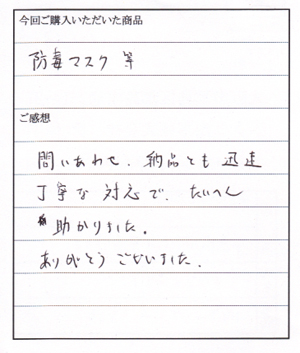 今回ご購入いただいた商品
防毒マスク 等
ご感想
問いあわせ、納品とも 迅速
丁寧な 対応で、たいへん
助かりました。
ありがとうございました。